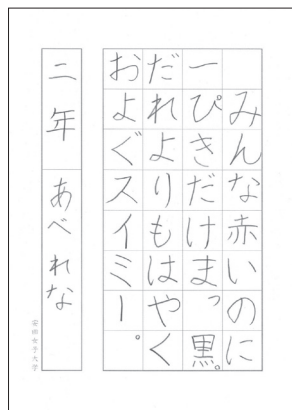 みんな赤いのに
一ぴきだけまっ黒。
だれよりもはやく
およぐスイミー。
二年 あべれな
安田女子大学